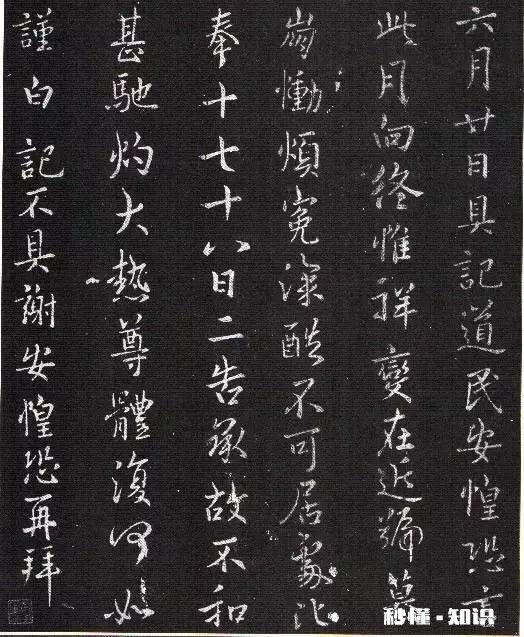 六月廿日具記道民安惶恐言
此月向終惟祥變在近號慕
崩慟煩冤深酷不可居處比
奉十七十八日二告承故不和
甚馳灼大熱尊體復何如
謹白記不具謝安惶恐再拜
秒懂·知识